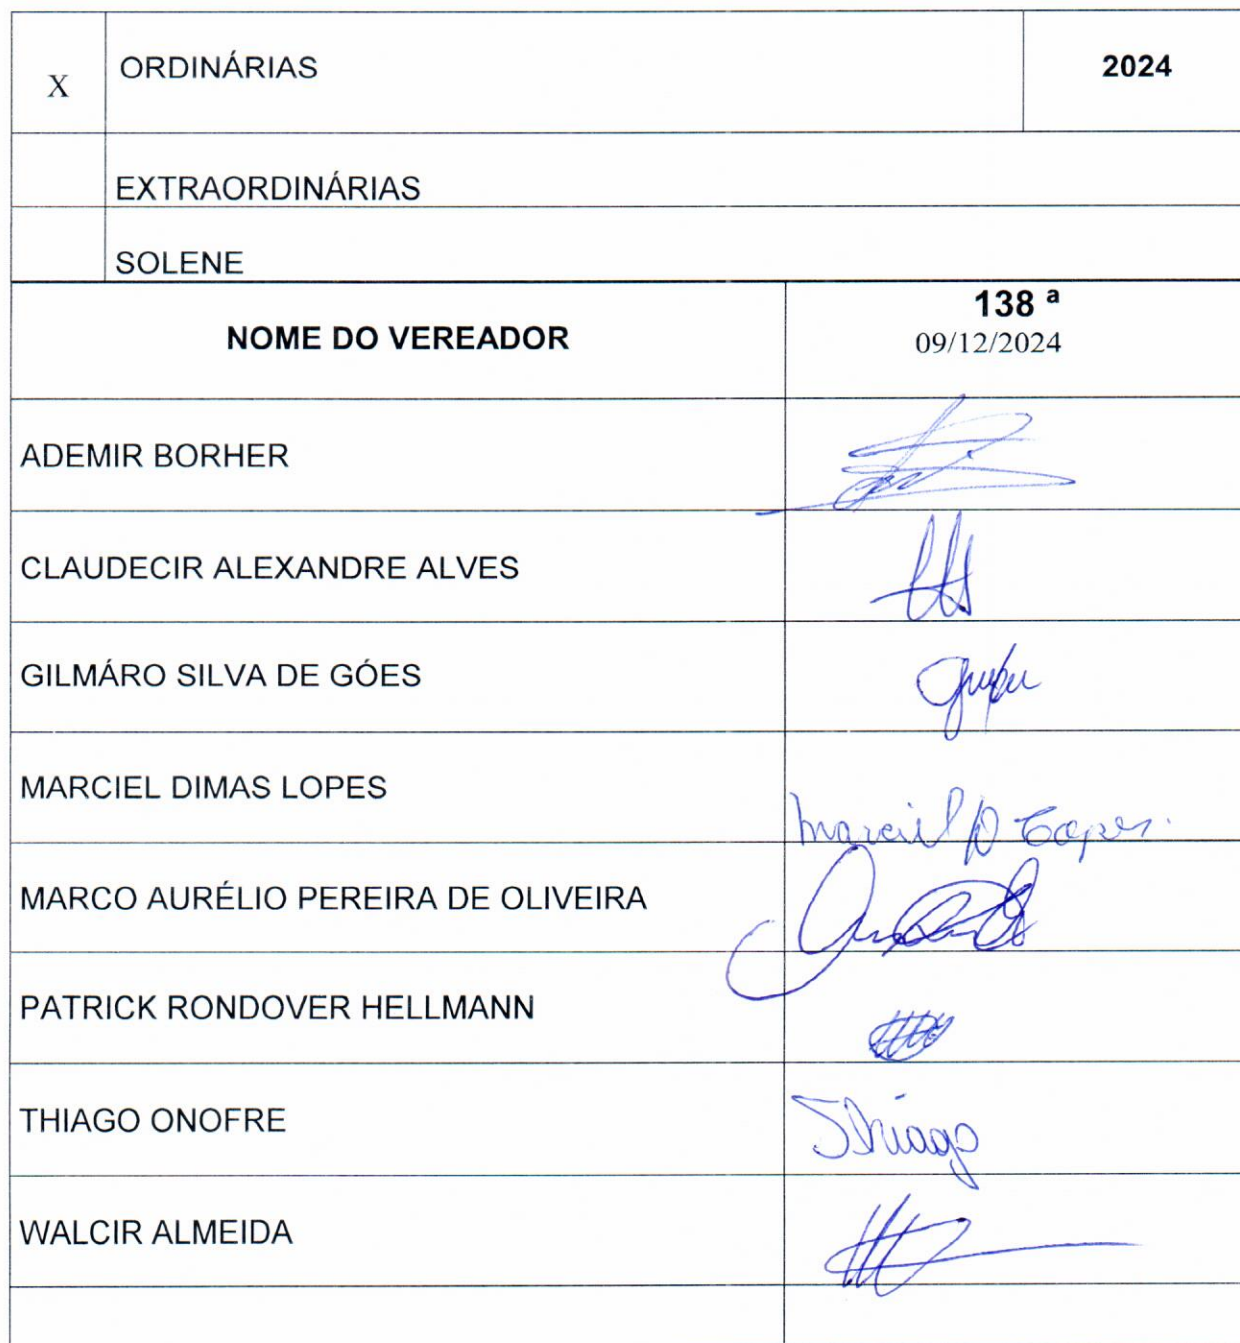 X ORDINÁRIAS 2024
EXTRAORDINÁRIAS
SOLENE
NOME DO VEREADOR 138 ª
09/12/2024
ADEMIR BORHER
CLAUDECIR ALEXANDRE ALVES
GILMÁRO SILVA DE GÓES
MARCIEL DIMAS LOPES
Marciel D Lopes.
MARCO AURÉLIO PEREIRA DE OLIVEIRA
PATRICK RONDOVER HELLMANN
THIAGO ONOFRE Thiago
WALCIR ALMEIDA